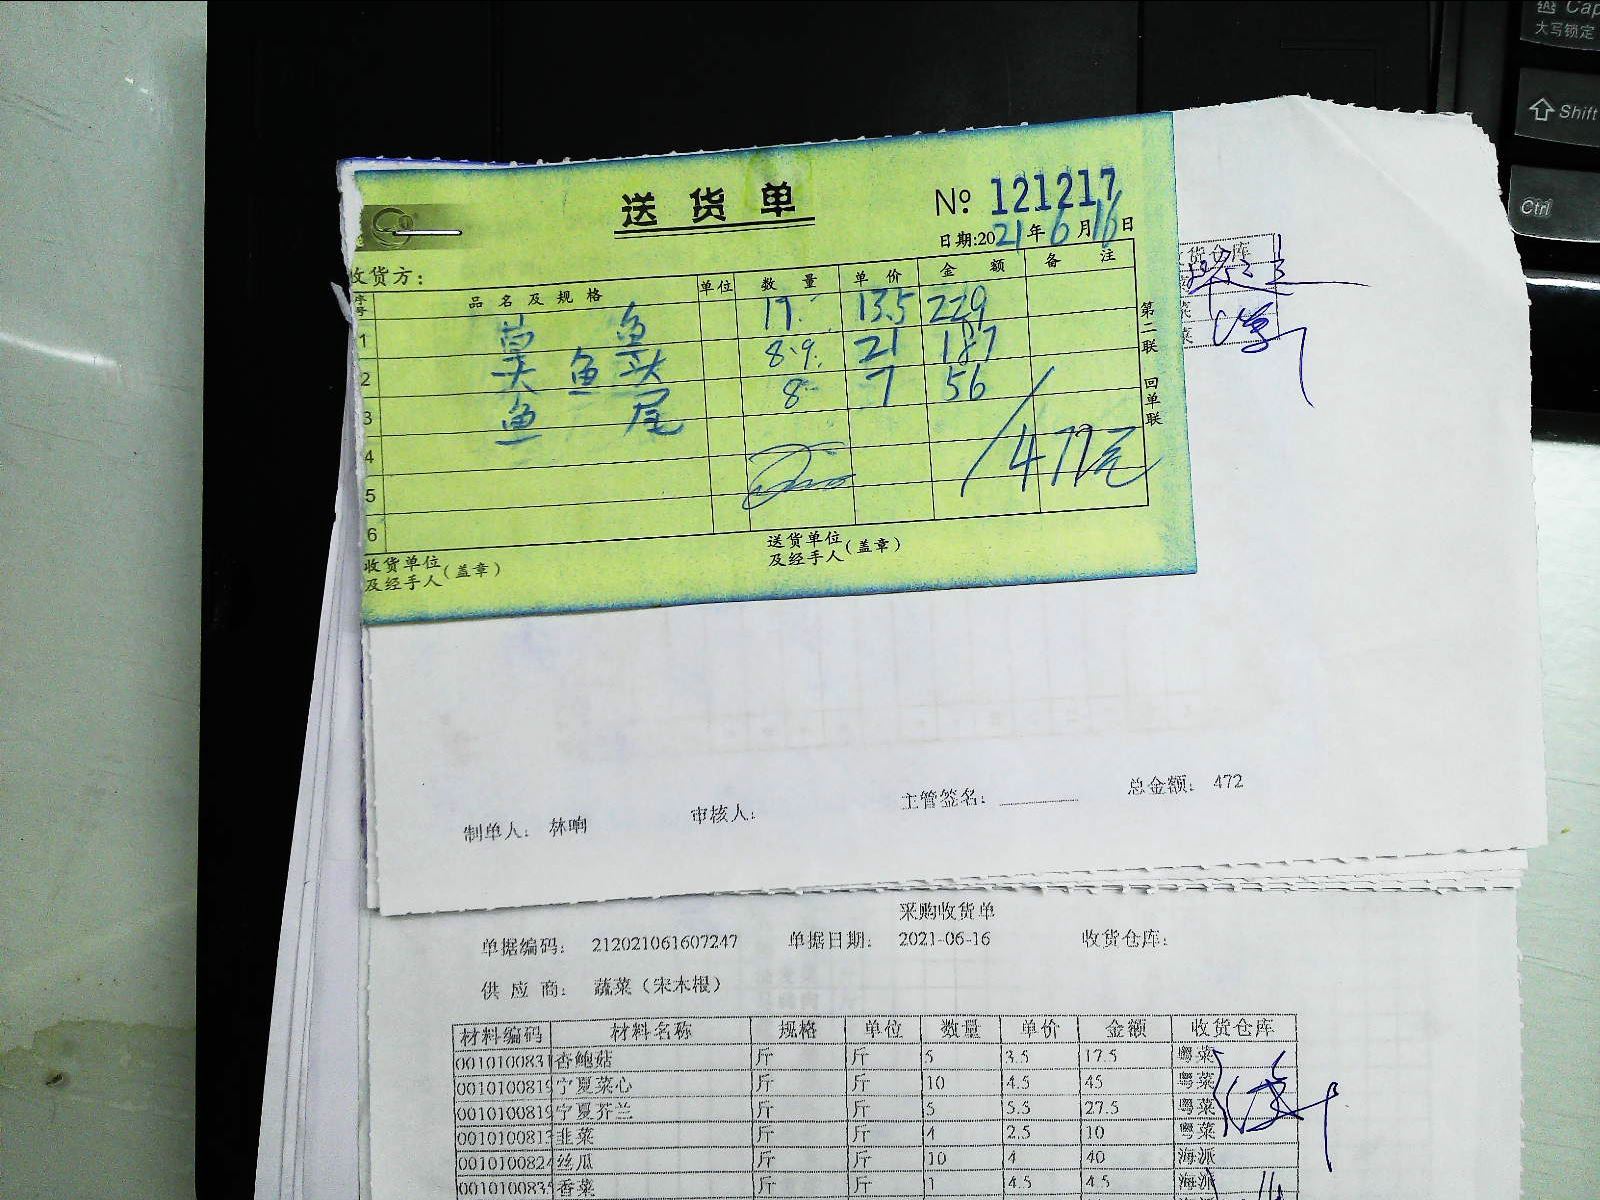 Cap
大写锁定
Shift
Ctrl
送货单
№ 121217
日期:2021年6月16日
收货方：
序号 品名及规格 单位 数量 单价 金额 备注
1 鱼 17. 13.5 229
2 大鱼头 8.9. 21 187
3 鱼尾 8 7 56
4
5
6
477元
第二联 回单联
收货单位及经手人(盖章)
送货单位及经手人(盖章)
货仓库
菜
菜
制单人： 林响 审核人： 主管签名： 总金额： 472
采购收货单
单据编码： 212021061607247 单据日期： 2021-06-16 收货仓库：
供应商： 蔬菜（宋木根）
材料编码 材料名称 规格 单位 数量 单价 金额 收货仓库
0010100831 香鲍菇 斤 斤 5 3.5 17.5 粤菜
0010100819 宁夏菜心 斤 斤 10 4.5 45 粤菜
0010100819 宁夏芥兰 斤 斤 5 5.5 27.5 粤菜
0010100813 韭菜 斤 斤 4 2.5 10 粤菜
0010100824 丝瓜 斤 斤 10 4 40 海派
0010100835 香菜 斤 斤 1 4.5 4.5 海派